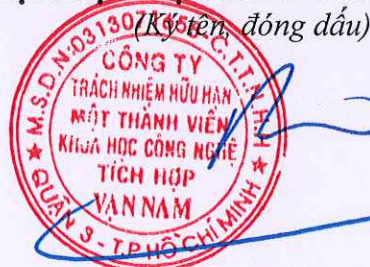 (Ký tên, đóng dấu)
CÔNG TY
TRÁCH NHIỆM HỮU HẠN
MỘT THÀNH VIÊN
KHOA HỌC CÔNG NGHỆ
TÍCH HỢP
VẠN NAM
QUẬN 3 - T.P HỒ CHÍ MINH